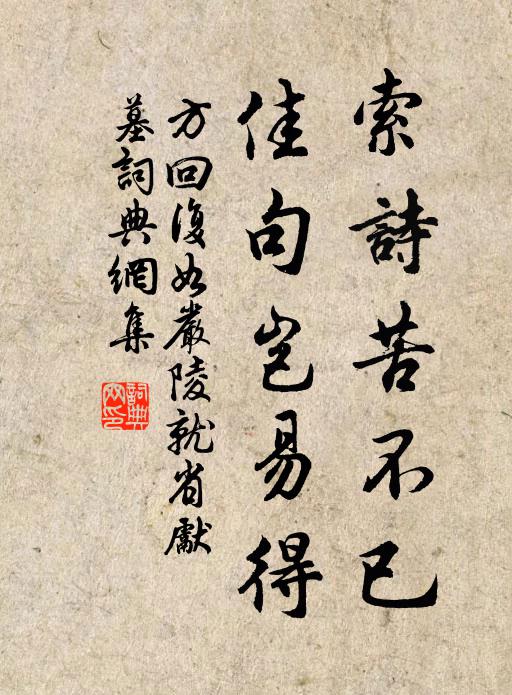 索詩苦不已
佳句豈易得
方回復如嚴陵就省獻
墓詞典網集
詞典
网印